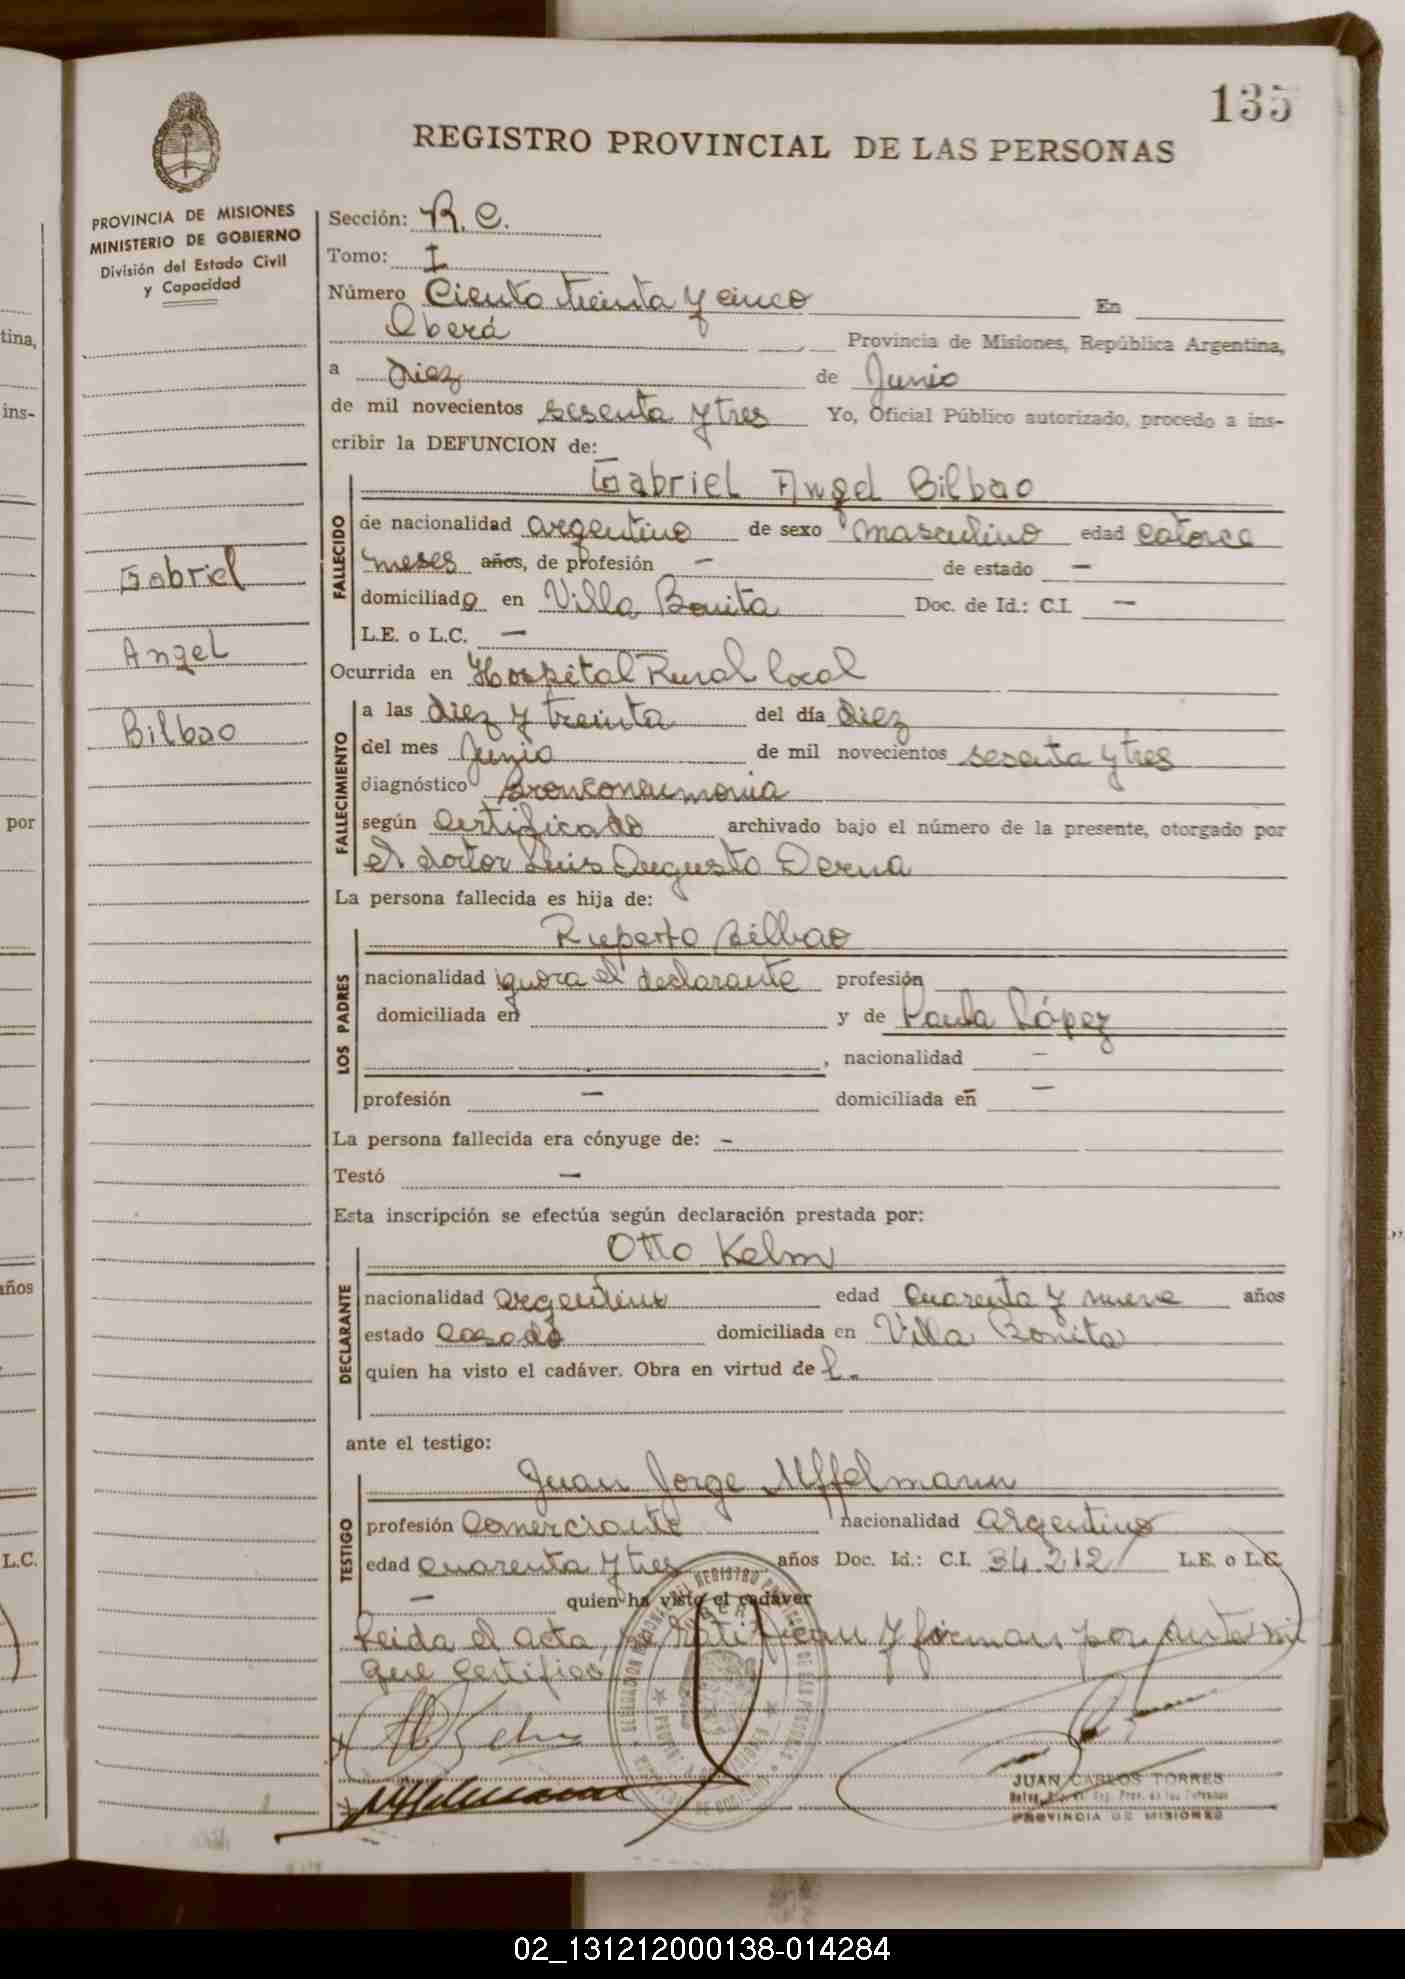 135
REGISTRO PROVINCIAL DE LAS PERSONAS
PROVINCIA DE MISIONES
MINISTERIO DE GOBIERNO
División del Estado Civil
y Capacidad
Sección: R. C.
Tomo: I
Número Ciento treinta y cinco En
Oberá Provincia de Misiones, República Argentina,
a diez de Junio
de mil novecientos sesenta y tres Yo, Oficial Público autorizado, procedo a ins-
cribir la DEFUNCION de:
Gabriel Angel Bilbao
FALLECIDO
de nacionalidad argentino de sexo masculino edad catorce
meses años, de profesión — de estado —
domiciliado en Villa Bonita Doc. de Id.: C.I. —
L.E. o L.C. —
Gabriel
Angel
Bilbao
Ocurrida en Hospital Rural local
FALLECIMIENTO
a las diez y treinta del día diez
del mes Junio de mil novecientos sesenta y tres
diagnóstico Bronconeumonia
según Certificado archivado bajo el número de la presente, otorgado por
el doctor Luis Augusto Derna
La persona fallecida es hija de:
LOS PADRES
Ruperto Bilbao
nacionalidad ignora el declarante profesión
domiciliada en y de Paula López
, nacionalidad —
profesión — domiciliada en —
La persona fallecida era cónyuge de: -
Testó —
Esta inscripción se efectúa según declaración prestada por:
DECLARANTE
Otto Kelm
nacionalidad argentino edad cuarenta y nueve años
estado casado domiciliada en Villa Bonita
quien ha visto el cadáver. Obra en virtud de l.
ante el testigo:
TESTIGO
Juan Jorge Uffelmann
profesión Comerciante nacionalidad argentino
edad cuarenta y tres años Doc. Id.: C.I. 34.212 L.E. o L.C.
— quien ha visto el cadáver
Leida el acta, se ratifican y firman por ante mi
que certifico
JUAN CARLOS TORRES
PROVINCIA DE MISIONES
tina,
ins-
por
años
L.C.
02_131212000138-014284